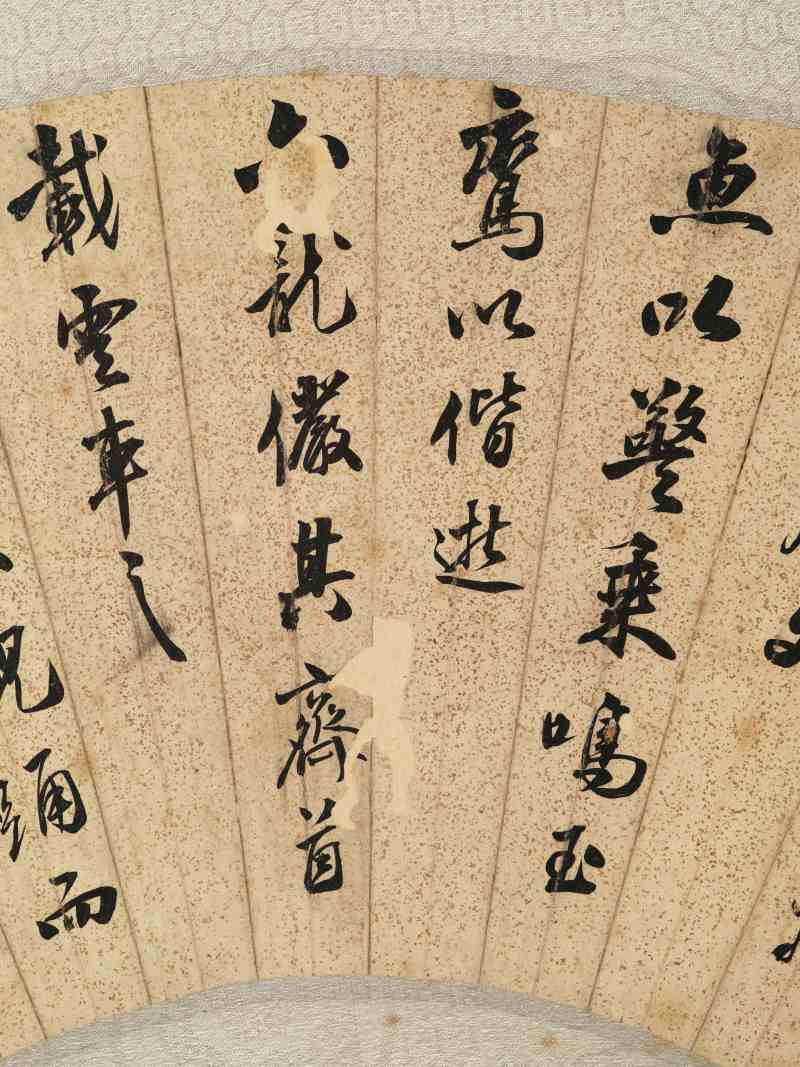 魚以警乘鳴玉
鸞以偕逝
六龍儼其齊首
載雲車之
踊而